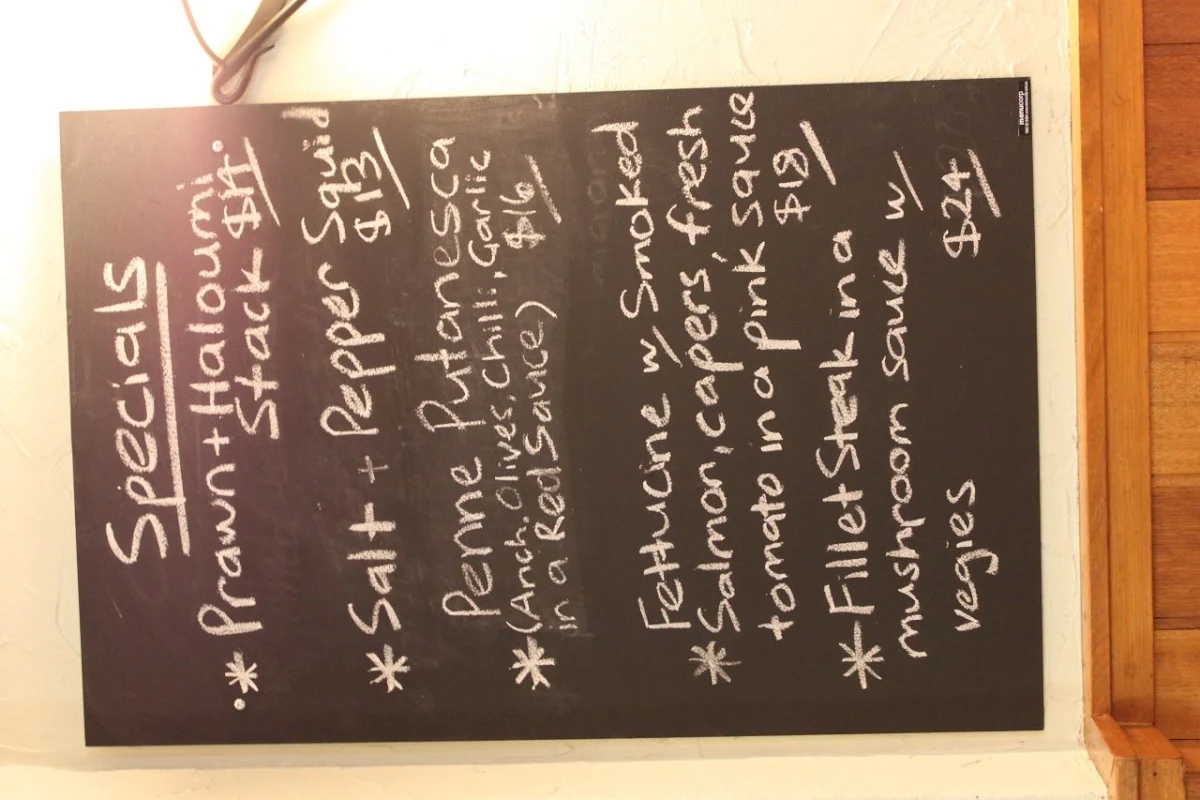 Specials
* Prawn + Haloumi
Stack $14
* Salt + Pepper Squid
$13
Penne Putanesca
* (Anch. olives, chilli, Garlic
in a Red Sauce) $16
Fettucine w Smoked
* Salmon, capers, fresh
tomato in a pink sauce
$18
* Fillet Steak in a
mushroom sauce w
vegies $24
menucorp